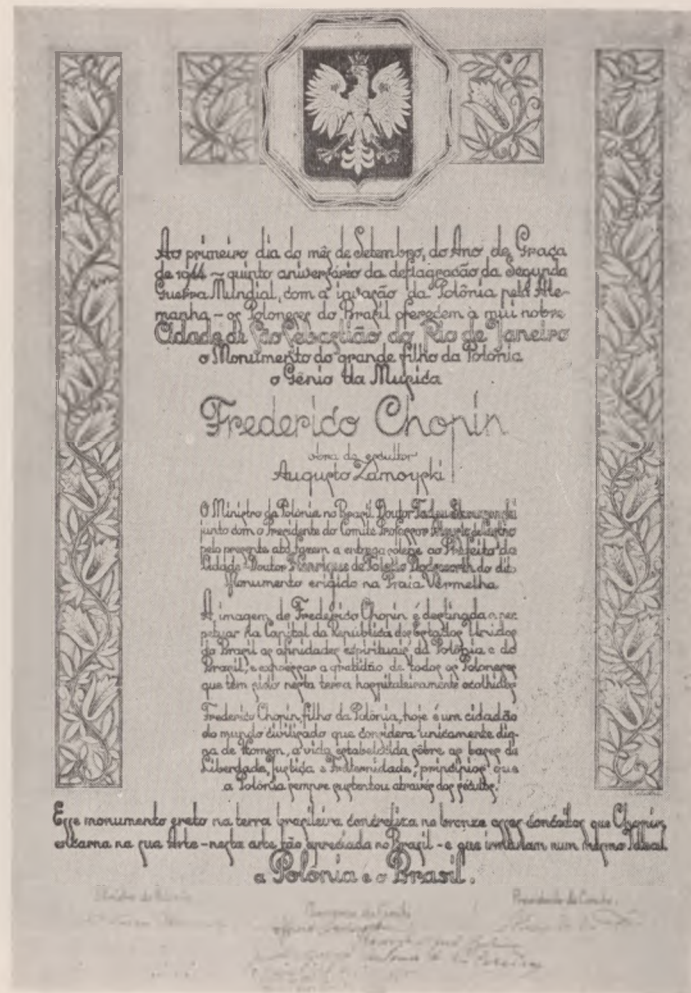 Ao primeiro dia do mês de Setembro, do Ano de Graça
de 1944 – quinto aniversário da deflagração da Segunda
Guerra Mundial, com a invasão da Polônia pela Ale-
manha – os Poloneses do Brasil oferecem à mui nobre
Cidade de São Sebastião do Rio de Janeiro
o Monumento do grande filho da Polônia
o Gênio da Musica
Frederico Chopin
obra do escultor
Augusto Zamoyski
O Ministro da Polônia no Brasil Doutor Tadeu
junto com o Presidente do Comité Professor
pelo presente ato fazem a entrega solene ao Prefeito da
Cidade Doutor Henrique de Toledo Dodsworth do dito
Monumento erigido na Praia Vermelha
A imagem de Frederico Chopin é destinada a per-
petuar na Capital da Republica dos Estados Unidos
do Brasil as afinidades espirituais da Polônia e do
Brasil, e expressar a gratidão de todos os Poloneses
que têm sido nesta terra hospitaleiramente acolhidos
Frederico Chopin, filho da Polônia, hoje é um cidadão
do mundo civilizado que considera unicamente dig-
na de Homem, a vida estabelecida sôbre as bases da
Liberdade, Justiça e Fraternidade, princípios que
a Polônia sempre sustentou através dos séculos.
Esse monumento ereto na terra brasileira concretiza no bronze esses conceitos que Chopin
encarna na sua Arte – nesta arte tão apreciada no Brasil – e que irmanam num mesmo Ideal
a Polonia e o Brasil.
Presidente do Comité.